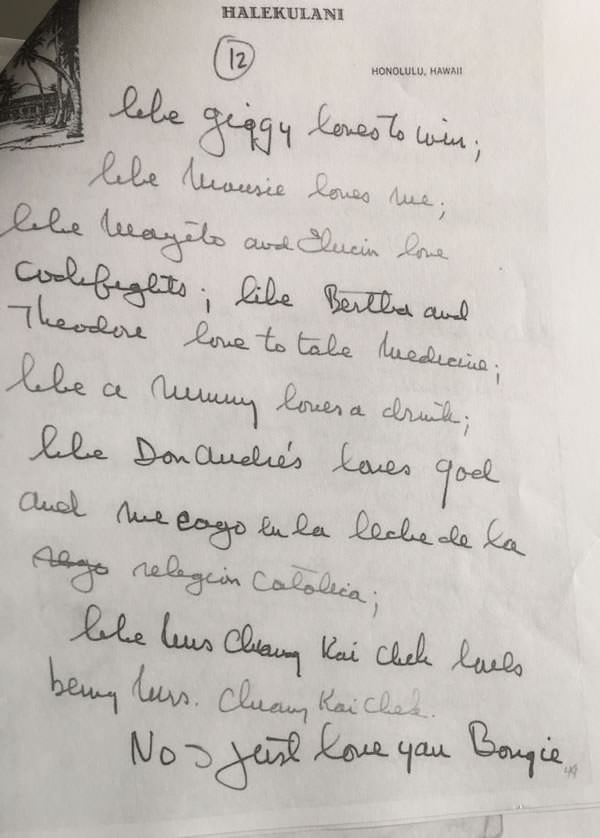 HALEKULANI
12
HONOLULU, HAWAII
like giggy loves to win;
like Mousie loves me;
like Mayito and Elicin love
cockfights; like Bertha and
Theodore love to take medicine;
like a mummy loves a drink;
like Don Andrés loves god
and me cago en la leche de la
religion Católica;
like Mrs Chiang Kai Chek loves
being Mrs. Chiang Kai Chek.
No I just love you Bongie